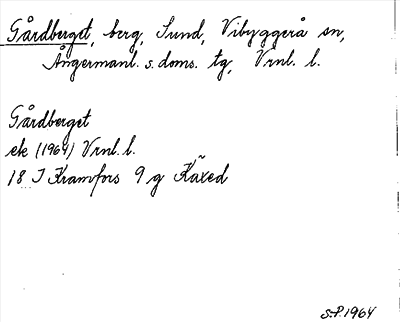 Gårdberget, berg, Sund, Vibyggerå sn,
Ångermanl. s. doms. tg, Vrnl. l.
Gårdberget
ek (1964) Vrnl. l.
18 J Kramfors 9 g Käxed
S.P. 1964